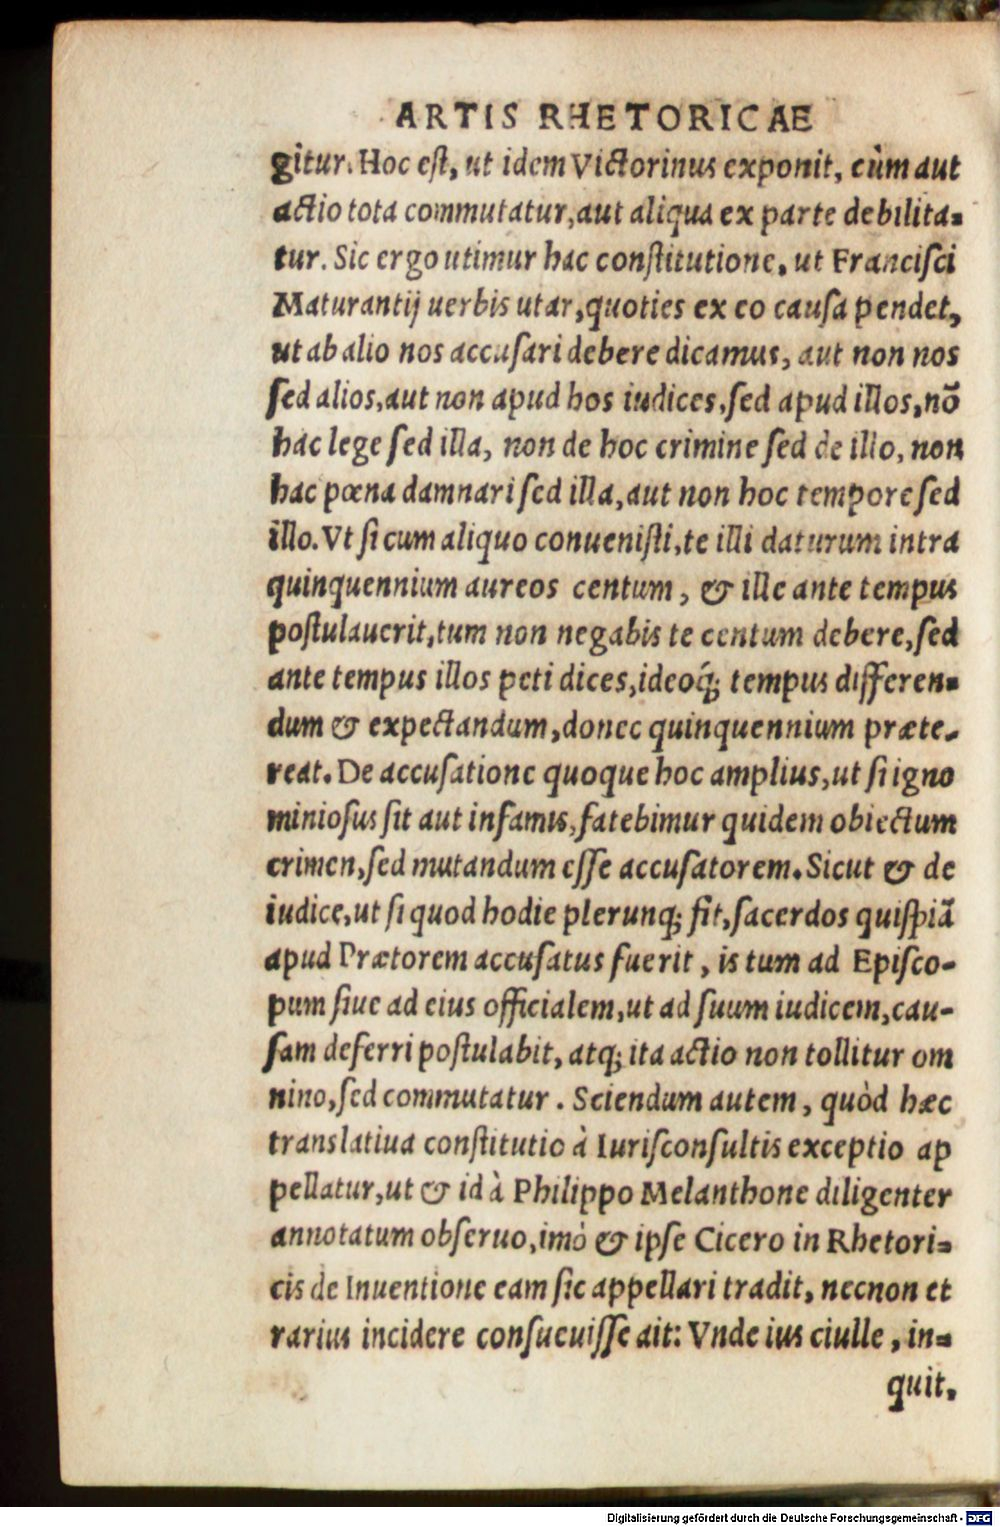 ARTIS RHETORICAE
gitur. Hoc est, ut idem Victorinus exponit, cùm aut
actio tota commutatur, aut aliqua ex parte debilita-
tur. Sic ergo utimur hac constitutione, ut Francisci
Maturantij uerbis utar, quoties ex eo causa pendet,
ut ab alio nos accusari debere dicamus, aut non nos
sed alios, aut non apud hos iudices, sed apud illos, nō
hac lege sed illa, non de hoc crimine sed de illo, non
hac pœna damnari sed illa, aut non hoc tempore sed
illo. Vt si cum aliquo conuenisti, te illi daturum intra
quinquennium aureos centum, & ille ante tempus
postulauerit, tum non negabis te centum debere, sed
ante tempus illos peti dices, ideoq́; tempus differen-
dum & expectandum, donec quinquennium præte-
reat. De accusatione quoque hoc amplius, ut si igno
miniosus sit aut infamis, fatebimur quidem obiectum
crimen, sed mutandum esse accusatorem. Sicut & de
iudice, ut si quod hodie plerunq; fit, sacerdos quispiā
apud Prætorem accusatus fuerit, is tum ad Episco-
pum siue ad eius officialem, ut ad suum iudicem, cau-
sam deferri postulabit, atq; ita actio non tollitur om
nino, sed commutatur. Sciendum autem, quòd hæc
translatiua constitutio à Iurisconsultis exceptio ap
pellatur, ut & id à Philippo Melanthone diligenter
annotatum obseruo, imò & ipse Cicero in Rhetori-
cis de Inuentione eam sic appellari tradit, necnon et
rarius incidere consueuisse ait: Vnde ius ciuile, in-
quit,
Digitalisierung gefördert durch die Deutsche Forschungsgemeinschaft - DFG